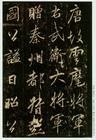 唐故雲麾將軍
右武衛大將軍
贈秦州都督彭
國公謚曰昭公